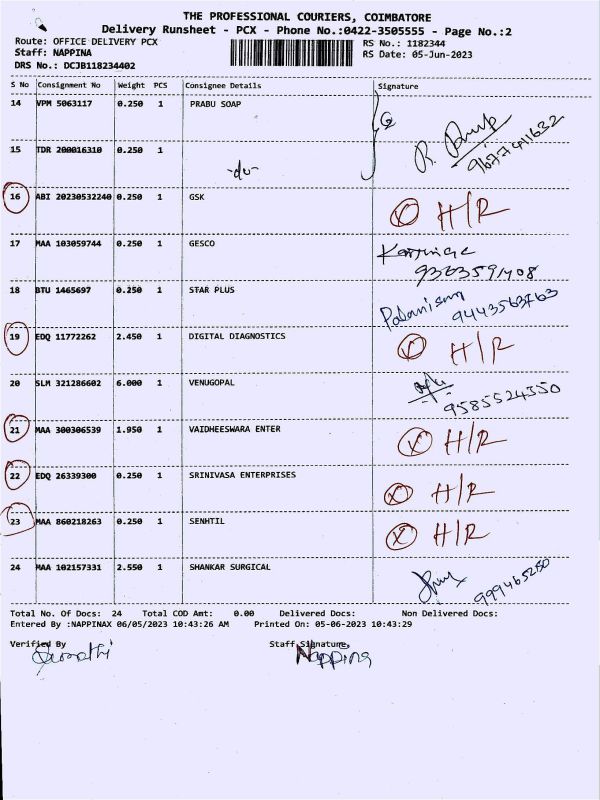 THE PROFESSIONAL COURIERS, COIMBATORE
Delivery Runsheet - PCX - Phone No.:0422-3505555 - Page No.:2
Route: OFFICE DELIVERY PCX RS No.: 1182344
Staff: NAPPINA RS Date: 05-Jun-2023
DRS No.: DCJB118234402
S No Consignment No Weight PCS Consignee Details Signature
14 VPM 5063117 0.250 1 PRABU SOAP
15 TDR 200016310 0.250 1 -do- 9677411632
16 ABI 20230532240 0.250 1 GSK X H/R
17 MAA 103059744 0.250 1 GESCO
18 BTU 1465697 0.250 1 STAR PLUS Palanisamy 9443563763
19 EDQ 11772262 2.450 1 DIGITAL DIAGNOSTICS X H/R
20 SLM 321286602 6.000 1 VENUGOPAL 9585524350
21 MAA 300306539 1.950 1 VAIDHEESWARA ENTER X H/R
22 EDQ 26339300 0.250 1 SRINIVASA ENTERPRISES X H/R
23 MAA 860218263 0.250 1 SENHTIL X H/R
24 MAA 102157331 2.550 1 SHANKAR SURGICAL
Total No. Of Docs: 24 Total COD Amt: 0.00 Delivered Docs: Non Delivered Docs:
Entered By :NAPPINAX 06/05/2023 10:43:26 AM Printed On: 05-06-2023 10:43:29
Verified By Staff Signature,
Nappina